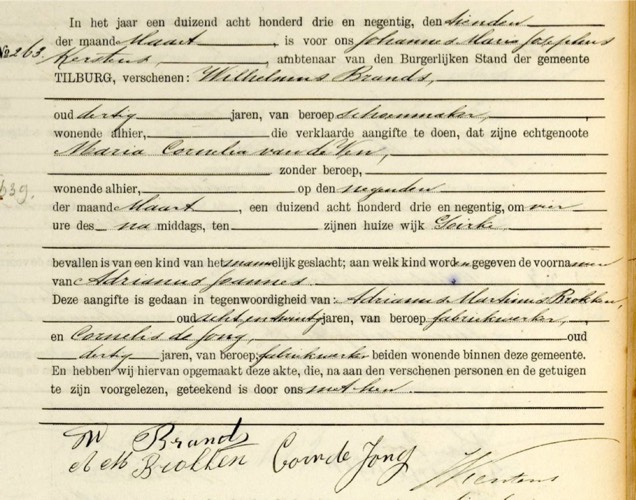 In het jaar een duizend acht honderd drie en negentig, den tienden
der maand Maart, is voor ons Johannes Maria Josephus
No 263. Kerstens, ambtenaar van den Burgerlijken Stand der gemeente
TILBURG, verschenen: Wilhelmus Brands,
oud dertig jaren, van beroep schoenmaker,
wonende alhier, die verklaarde aangifte te doen, dat zijne echtgenoote
Maria Cornelia van de Ven,
zonder beroep,
639.
wonende alhier, op den negenden
der maand Maart, een duizend acht honderd drie en negentig, om vier
ure des na middags, ten zijnen huize wijk Goirke
bevallen is van een kind van het mannelijk geslacht; aan welk kind worden gegeven de voornamen
van Adrianus Joannes.
Deze aangifte is gedaan in tegenwoordigheid van: Adrianus Martinus Brokken,
oud achtentwintig jaren, van beroep fabriekwerker,
en Cornelis de Jong, oud
dertig jaren, van beroep, fabriekwerker beiden wonende binnen deze gemeente.
En hebben wij hiervan opgemaakt deze akte, die, na aan den verschenen personen en de getuigen
te zijn voorgelezen, geteekend is door ons met hen.
W Brands
A M Brokken Cor de Jong
Kerstens